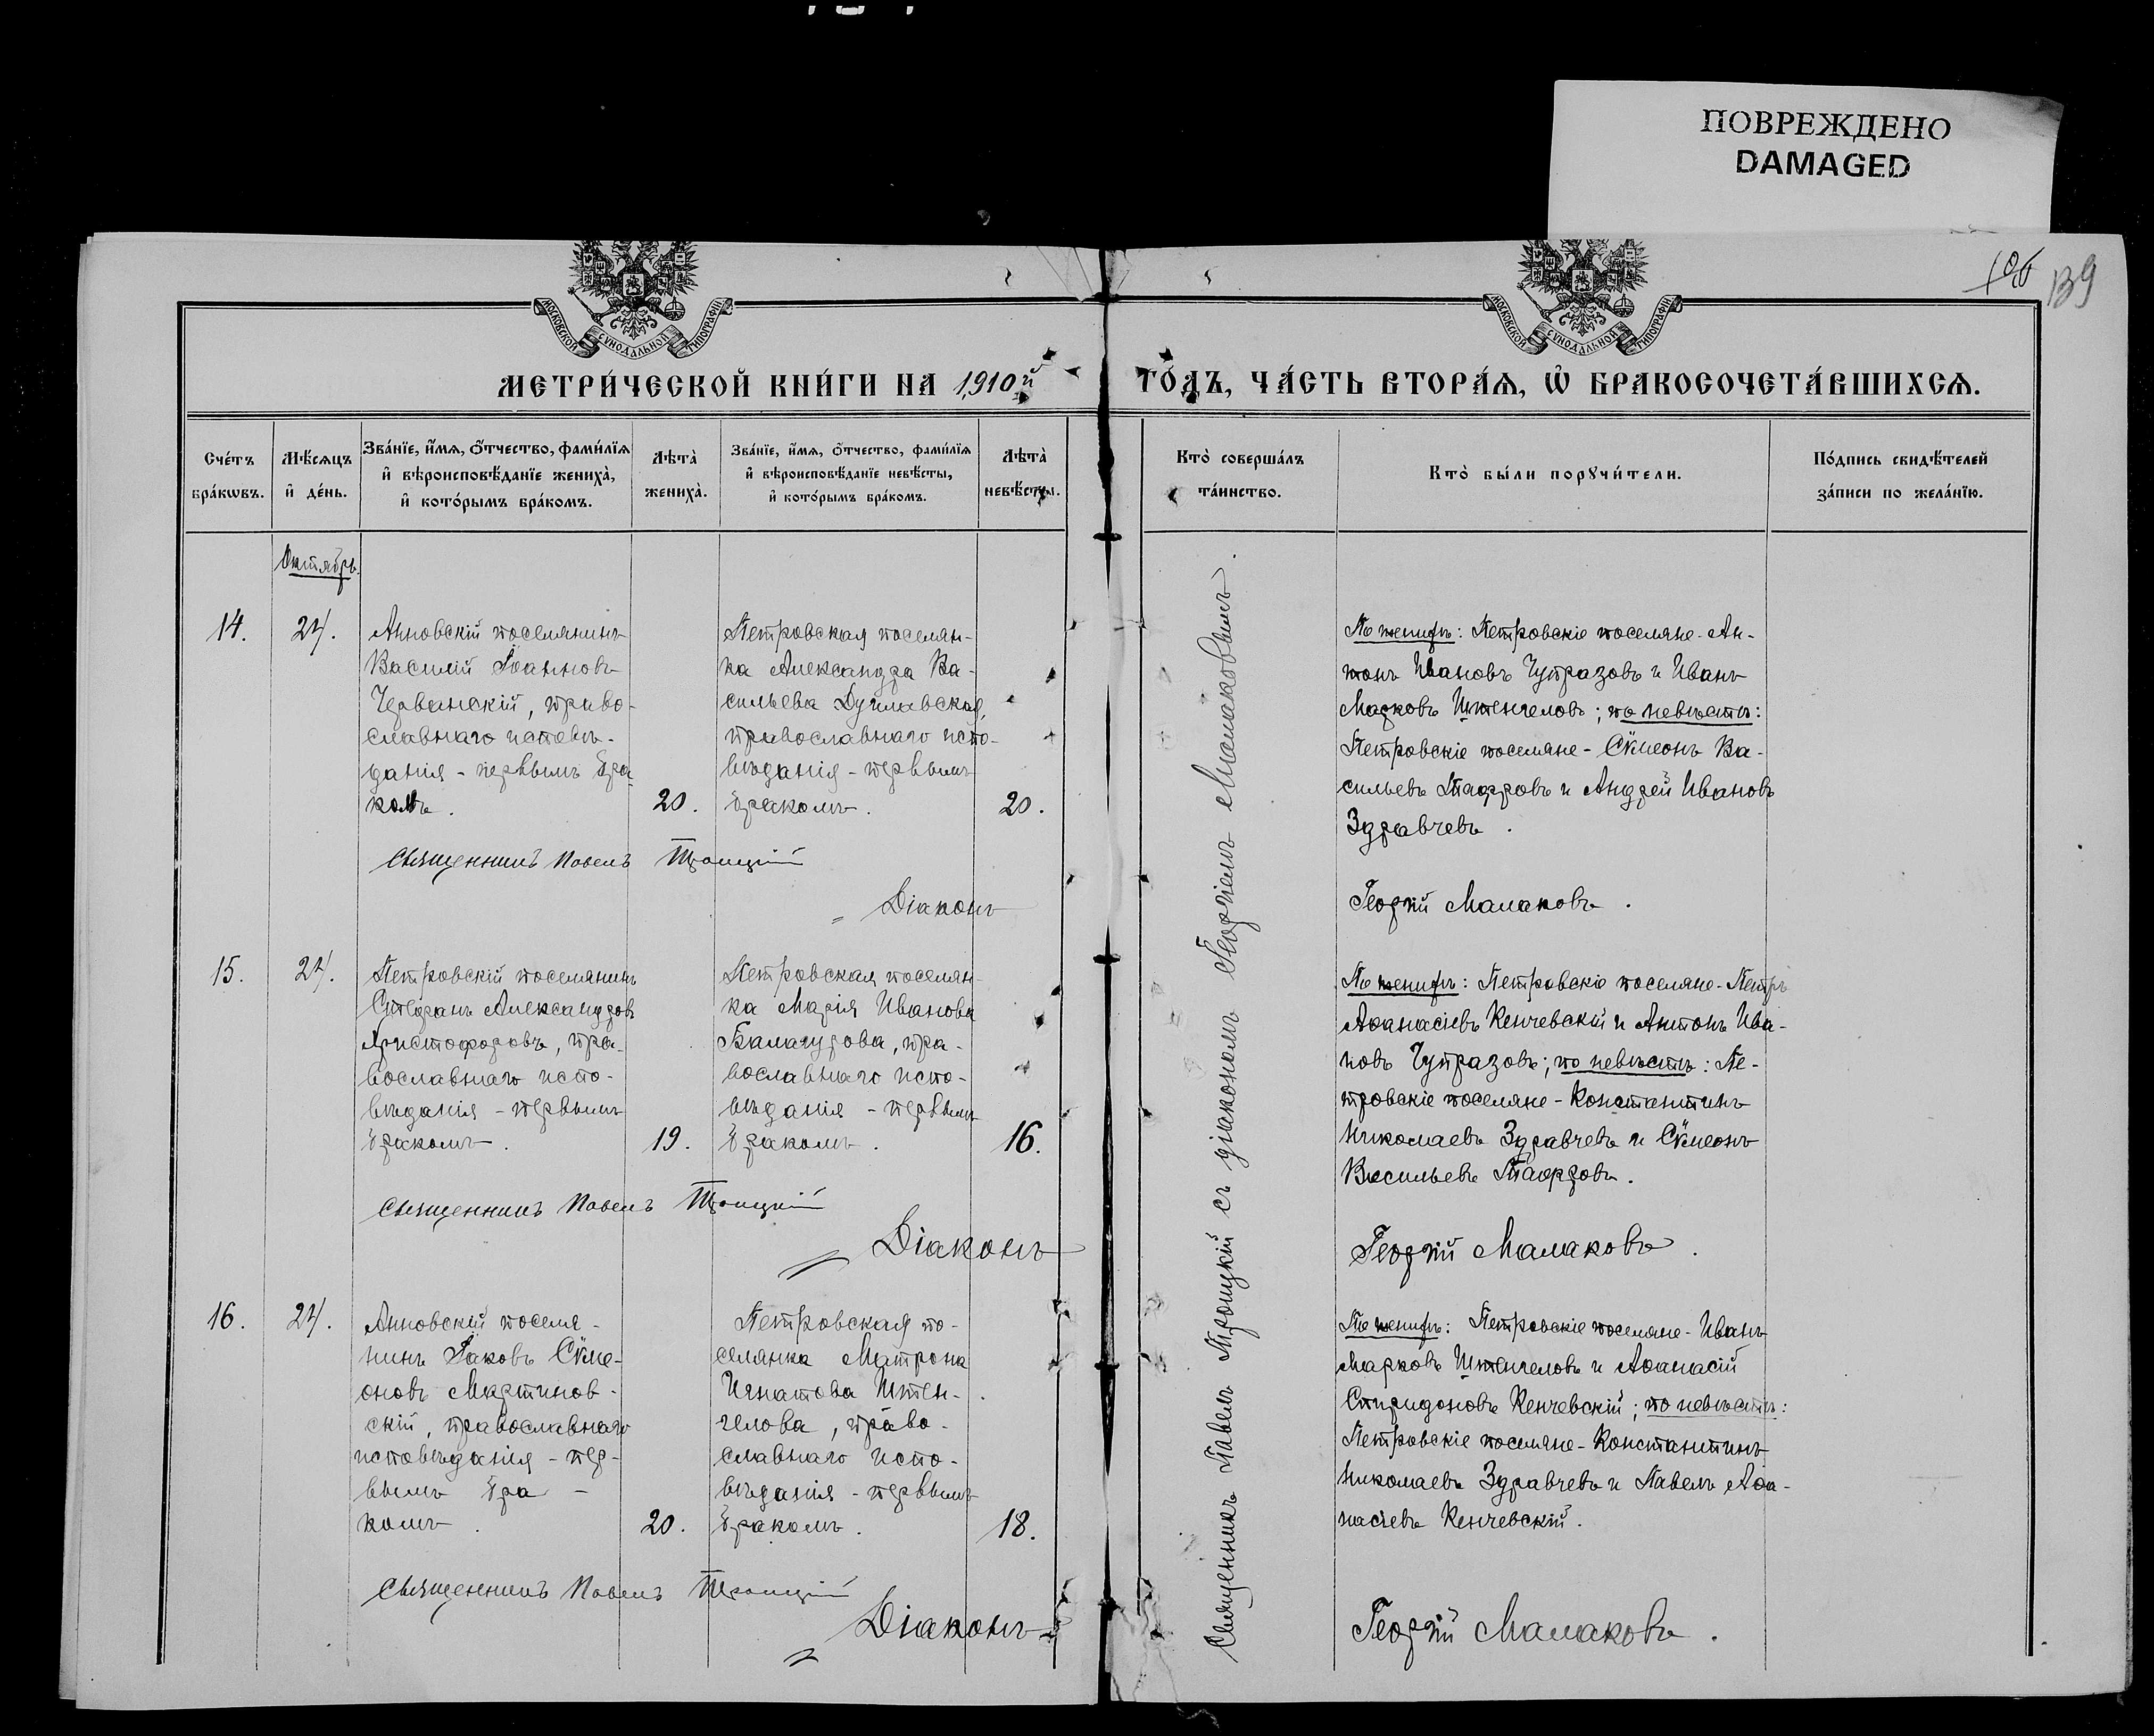 ПОВРЕЖДЕНО
DAMAGED
139
МОСКОВСКОЙ СѴНОДАЛЬНОЙ ТИПОГРАФІИ
МОСКОВСКОЙ СѴНОДАЛЬНОЙ ТИПОГРАФІИ
МЕТРИ́ЧЕСКОЙ КНИ́ГИ НА 1910й ГО́ДЪ, ЧА́СТЬ ВТОРА́Ѧ, Ѡ҆ БРАКОСОЧЕТА́ВШИХСѦ.
Сче́тъ
бра́кѡвъ.
Мѣ́сѧцъ
и҆ де́нь.
Зва́нїе, и҆́мѧ, о҆́тчество, фами́лїѧ
и҆ вѣроисповѣ́данїе жениха̀,
и҆ кото́рымъ бра́комъ.
Лѣта̀
жениха̀.
Зва́нїе, и҆́мѧ, о҆́тчество, фами́лїѧ
и҆ вѣроисповѣ́данїе невѣ́сты,
и҆ кото́рымъ бра́комъ.
Лѣта̀
невѣ́сты.
Кто̀ соверша́лъ
та́инство.
Кто̀ бы́ли порꙋчи́тели.
По́дпись свидѣ́телей
за́писи по жела́нїю.
Октябрь.
14.
24.
Анновскій поселянинъ
Василій Іоанновъ
Червинскій, право-
славнаго исповѣ-
данія - первымъ бра-
комъ.
20.
Петровская поселян-
ка Александра Ва-
сильева Дуплавская,
православнаго испо-
вѣданія - первымъ
бракомъ.
20.
По женихѣ: Петровскіе поселяне - Ан-
тонъ Ивановъ Чупразовъ и Иванъ
Марковъ Штенгеловъ; по невѣстѣ:
Петровскіе поселяне - Сѵмеонъ Ва-
сильевъ Тафровъ и Андрей Ивановъ
Здравчевъ.
Священникъ Павелъ Троицкій
Діаконъ Георгій Малаковъ.
15.
24.
Петровскій поселянинъ
Стефанъ Александровъ
Христофоровъ, пра-
вославнаго испо-
вѣданія - первымъ
бракомъ.
19.
Петровская поселян-
ка Марія Иванова
Балачурова, пра-
вославнаго испо-
вѣданія - первымъ
бракомъ.
16.
По женихѣ: Петровскіе поселяне - Петръ
Аѳанасіевъ Кенчевскій и Антонъ Ива-
новъ Чупразовъ; по невѣстѣ: Пе-
тровскіе поселяне - Константинъ
Николаевъ Здравчевъ и Сѵмеонъ
Васильевъ Тафровъ.
Священникъ Павелъ Троицкій
Діаконъ Георгій Малаковъ.
16.
24.
Анновскій поселя-
нинъ Іаковъ Сѵме-
оновъ Мартинов-
скій, православнаго
исповѣданія - пер-
вымъ бра-
комъ.
20.
Петровская по-
селянка Матрона
Игнатова Штен-
гелова, право-
славнаго испо-
вѣданія - первымъ
бракомъ.
18.
По женихѣ: Петровскіе поселяне - Иванъ
Марковъ Штенгеловъ и Аѳанасій
Спиридоновъ Кенчевскій; по невѣстѣ:
Петровскіе поселяне - Константинъ
Николаевъ Здравчевъ и Павелъ Аѳа-
насіевъ Кенчевскій.
Священникъ Павелъ Троицкій
Діаконъ Георгій Малаковъ.
Священникъ Павелъ Троицкій съ діакономъ Георгіемъ Малаковымъ.